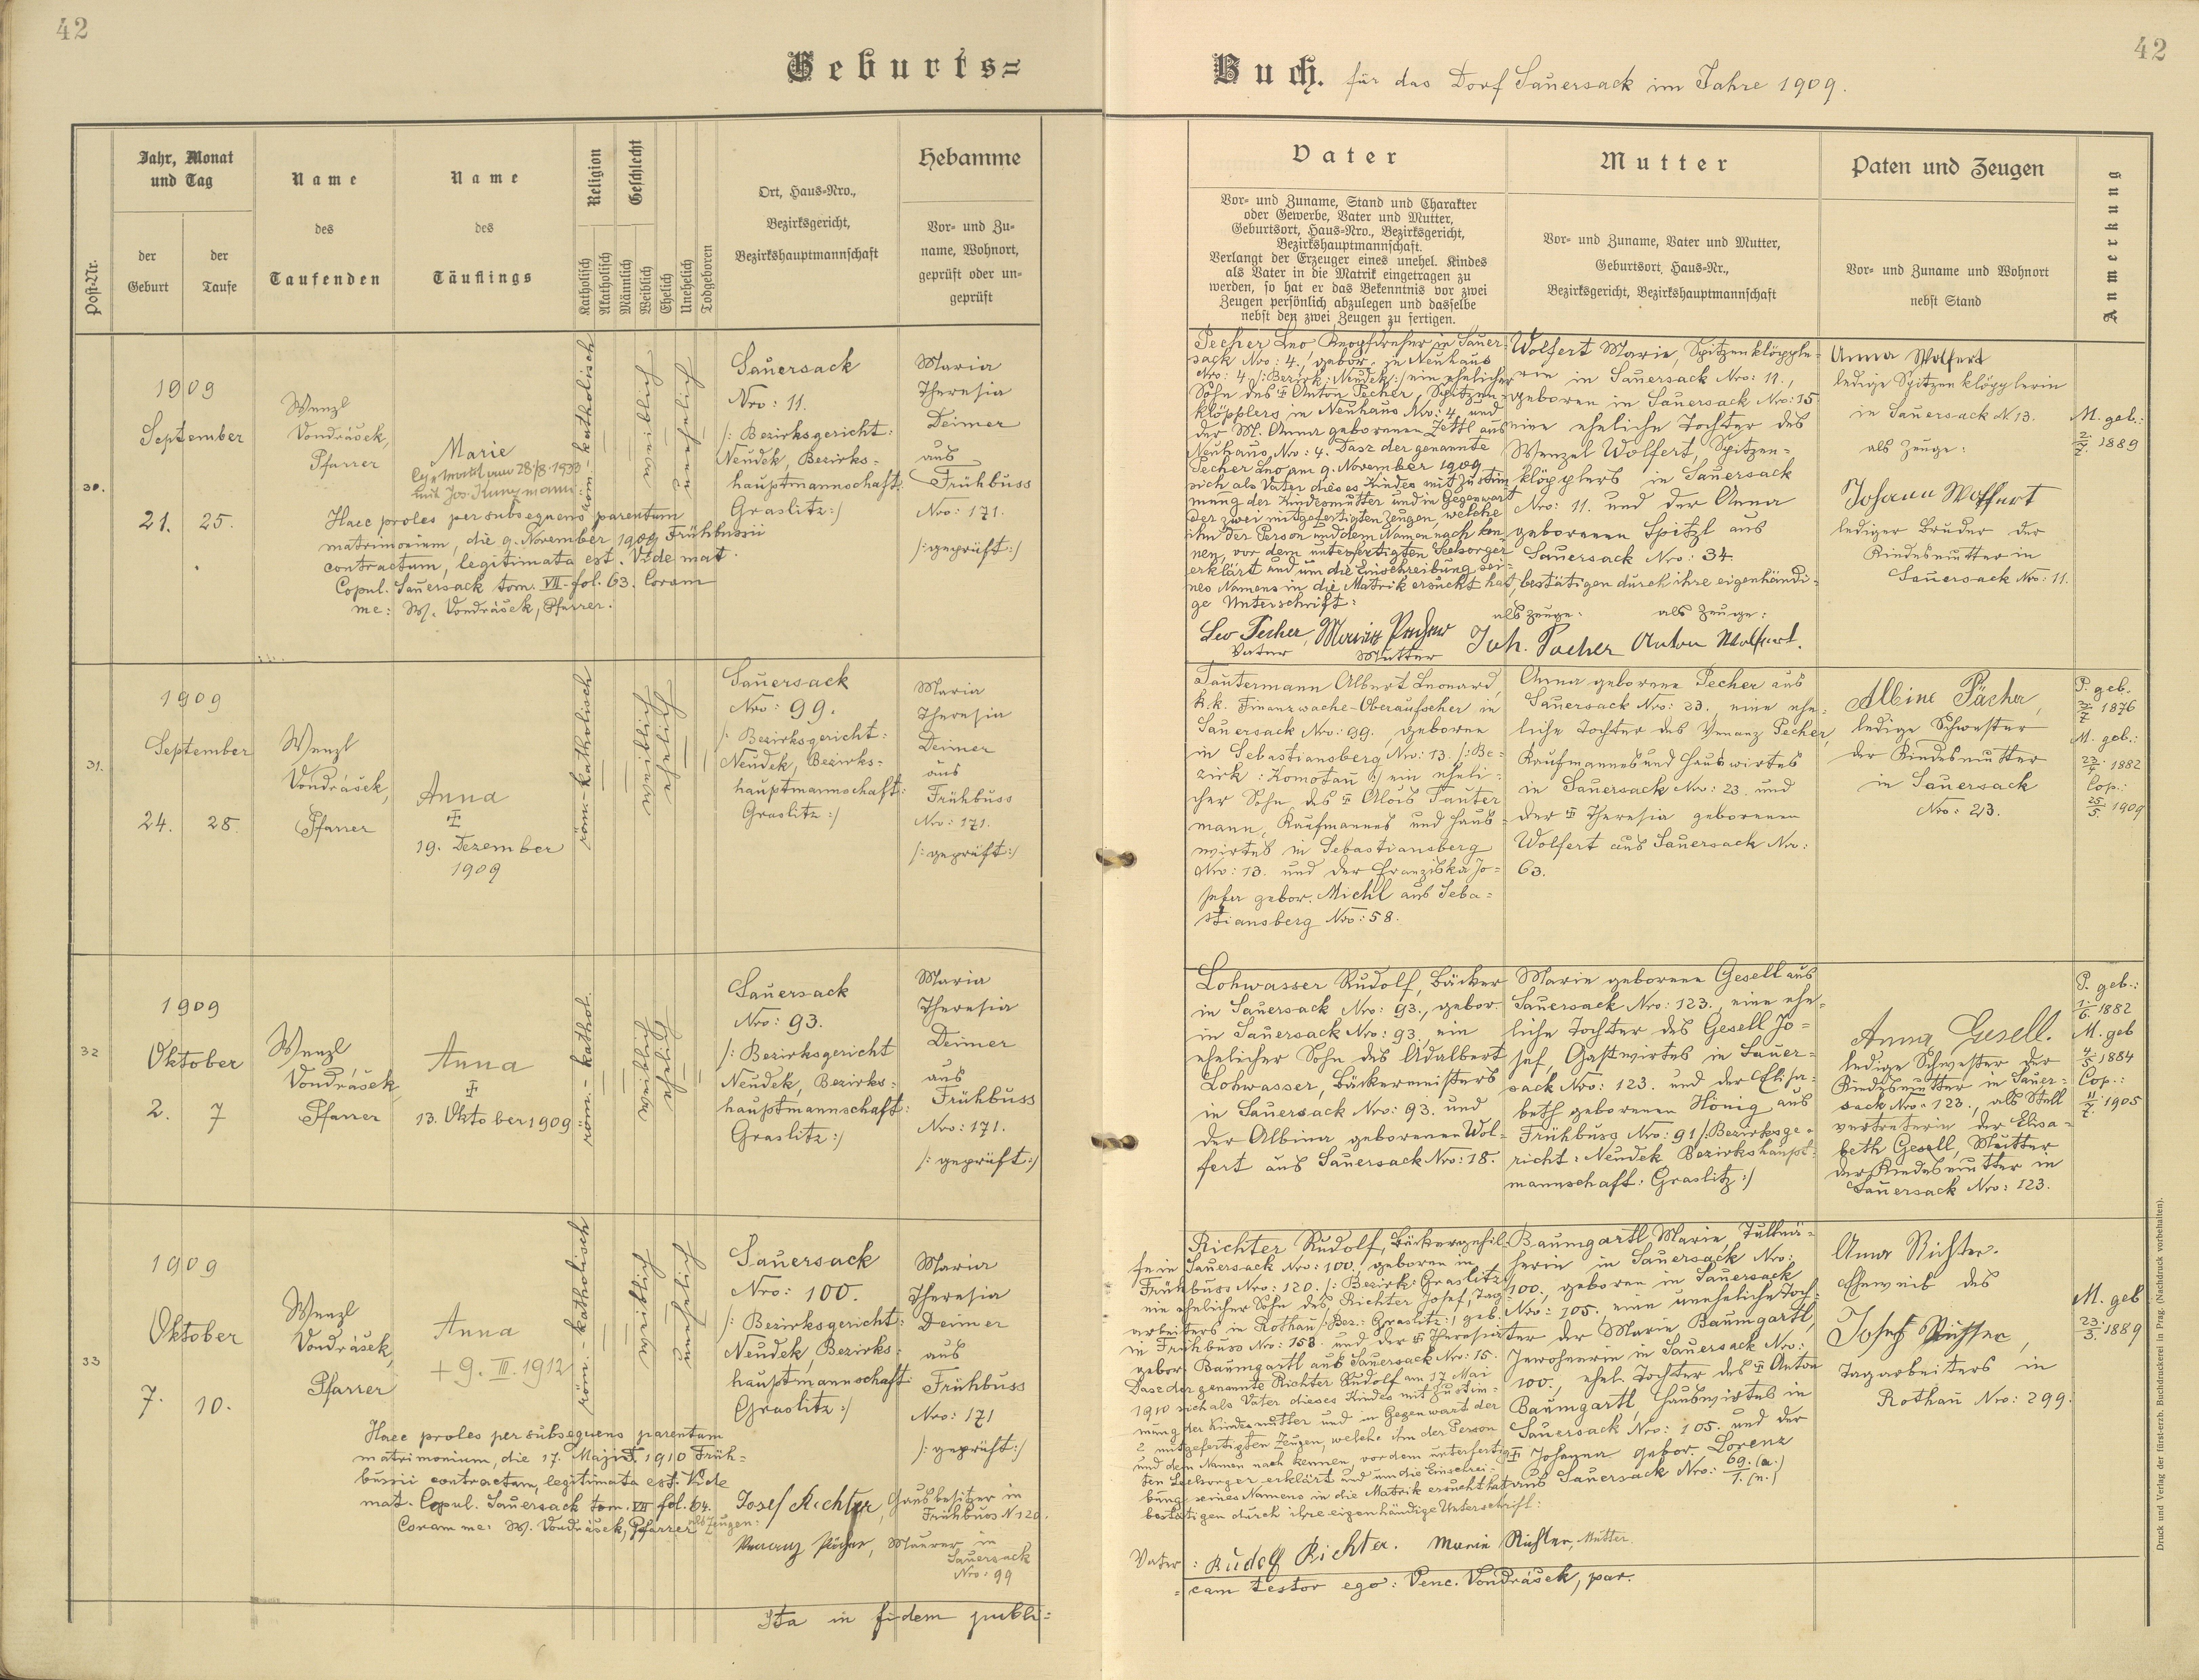 42
42
Geburts=
Buch. für das Dorf Sauersack im Jahre 1909.
Post-Nr.
Jahr, Monat
und Tag
der
Geburt
der
Taufe
Name
des
Taufenden
Name
des
Täuflings
Religion
Katholisch
Akatholisch
Geschlecht
Männlich
Weiblich
Ehelich
Unehelich
Todgeboren
Ort, Haus-Nro.,
Bezirksgericht,
Bezirkshauptmannschaft
Hebamme
Vor- und Zu-
name, Wohnort,
geprüft oder un-
geprüft
Vater
Vor- und Zuname, Stand und Charakter
oder Gewerbe, Vater und Mutter,
Geburtsort, Haus-Nro., Bezirksgericht,
Bezirkshauptmannschaft.
Verlangt der Erzeuger eines unehel. Kindes
als Vater in die Matrik eingetragen zu
werden, so hat er das Bekenntnis vor zwei
Zeugen persönlich abzulegen und dasselbe
nebst den zwei Zeugen zu fertigen.
Mutter
Vor- und Zuname, Vater und Mutter,
Geburtsort, Haus-Nr.,
Bezirksgericht, Bezirkshauptmannschaft
Paten und Zeugen
Vor- und Zuname und Wohnort
nebst Stand
Anmerkung
30.
1909
September
21. 25.
Wenzl
Vondrášek,
Pfarrer
Marie
am 28/8. 1933
mit Jos. Kunzmann
Haec proles per subsequens parentum
matrimonium, die 9. November 1909 Frühbussii
contractum, legitimata est. Vide mat.
Copul. Sauersack tom. VII fol. 63. Coram
me: W. Vondrášek, Pfarrer.
röm.-katholisch
weiblich
unehelich
Sauersack
Nro: 11.
/: Bezirksgericht:
Neudek, Bezirks-
hauptmannschaft:
Graslitz :/
Maria
Theresia
Deimer
aus
Frühbuss
Nro: 171.
/: geprüft :/
Pecher Leo Knopfdreher in Sauer-
sack Nro: 4., gebor. zu Neuhaus
Nro: 4 /: Bezirk: Neudek :/ ein ehelicher
Sohn des ‡ Anton Pecher, Spitzen-
klöpplers in Neuhaus Nro: 4 und
der M. Anna geborenen Zettl aus
Neuhaus, Nro: 4. Dasz der genannte
Pecher Leo am 9. November 1909
sich als Vater dieses Kindes mit Zustim-
mung der Kindesmutter und in Gegenwart
der zwei mitgefertigten Zeugen, welche
ihn der Person und dem Namen nach ken-
nen, vor dem unterfertigten Seelsorger
erklärt und um die Einschreibung sei-
nes Namens in die Matrik ersucht hat, bestätigen durch ihre eigenhändi-
ge Unterschrift:
Leo Pecher, Vater
Maria Pecher Mutter
als Zeuge: Joh. Pecher
als Zeuge: Anton Wolfert.
Wolfert Marie, Spitzenklöpple-
rin in Sauersack Nro: 11.,
geboren in Sauersack Nro: 15
eine eheliche Tochter des
Wenzel Wolfert, Spitzen-
klöpplers in Sauersack
Nro: 11. und der Anna
geborenen Spitzl aus
Sauersack Nro: 34.
Anna Wolfert
ledige Spitzenklöpplerin
in Sauersack N 13.
als Zeuge:
Johann Wolfert
lediger Bruder der
Kindesmutter in
Sauersack Nro: 11.
M. geb.:
2/7. 1889
31.
1909
September
24. 28.
Wenzl
Vondrášek,
Pfarrer
Anna
‡
19. Dezember
1909
röm.-katholisch
weiblich
ehelich
Sauersack
Nro: 99.
/: Bezirksgericht:
Neudek, Bezirks-
hauptmannschaft:
Graslitz :/
Maria
Theresia
Deimer
aus
Frühbuss
Nro: 171.
/: geprüft :/
Tautermann Albert Leonard,
k.k. Finanzwache-Oberaufseher in
Sauersack Nro: 99. geboren
in Sebastiansberg Nro: 13. /: Be-
zirk: Komotau :/ ein eheli-
cher Sohn des ‡ Alois Tauter
mann, Kaufmannes und Haus-
wirtes in Sebastiansberg
Nro: 13. und der Franziska Jo-
sefa gebor. Michl aus Seba-
stiansberg Nro: 58.
Anna geborene Pecher aus
Sauersack Nro: 23. eine ehe-
liche Tochter des Venanz Pecher,
Kaufmannes und Hauswirtes
in Sauersack Nro: 23. und
der ‡ Theresia geborenen
Wolfert aus Sauersack Nro:
63.
Albine Pächer,
ledige Schwester
der Kindesmutter
in Sauersack
Nro: 23.
P. geb.
3/7 1876
M. geb.:
23/4. 1882
Cop.:
25/5. 1909
32
1909
Oktober
2. 7
Wenzl
Vondrášek
Pfarrer
Anna
‡
13. Oktober 1909
röm.-kathol.
weiblich
ehelich
Sauersack
Nro: 93.
/: Bezirksgericht
Neudek, Bezirks-
hauptmannschaft:
Graslitz :/
Maria
Theresia
Deimer
aus
Frühbuss
Nro: 171.
/: geprüft :/
Lohwasser Rudolf, Bäcker
in Sauersack Nro: 93., gebor.
in Sauersack Nro: 93. ein
ehelicher Sohn des Adalbert
Lohwasser, Bäckermeisters
in Sauersack Nro: 93. und
der Albina geborenen Wol-
fert aus Sauersack Nro: 18.
Marie geborene Gesell aus
Sauersack Nro: 123. eine ehe-
liche Tochter des Gesell Jo-
sef, Gastwirtes in Sauer-
sack Nro: 123. und der Elisa-
beth geborenen Hönig aus
Frühbuss Nro: 91 /: Bezirksge-
richt: Neudek Bezirkshaupt-
mannschaft: Graslitz :/
Anna Gesell.
ledige Schwester der
Kindesmutter in Sauer-
sack Nro: 123., als Stell
vertreterin der Elisa-
beth Gesell, Mutter
der Kindesmutter in
Sauersack Nro: 123.
P. geb.:
1./6. 1882
M. geb
4/5. 1884
Cop.:
11/7. 1905
33
1909
Oktober
7. 10.
Wenzl
Vondrášek,
Pfarrer
Anna
+ 9. III. 1912
Haec proles per subsequens parentum
matrimonium, die 17. Maji 1910 Früh-
bussii contractum, legitimata est. Vide
mat. Copul. Sauersack tom. VII fol. 64.
Coram me: W. Vondrášek, Pfarrer
als Zeugen:
röm.-katholisch
weiblich
unehelich
Sauersack
Nro: 100.
/: Bezirksgericht:
Neudek, Bezirks-
hauptmannschaft:
Graslitz :/
Maria
Theresia
Deimer
aus
Frühbuss
Nro: 171
/: geprüft :/
Josef Richter, Hausbesitzer in
Frühbuss N 120.
Venanz Pächer, Maurer in
Sauersack
Nro: 99
Richter Rudolf, Bäckergehil-
fe in Sauersack Nro: 100., geboren in
Frühbuss Nro: 120. /: Bezirk: Graslitz
ein ehelicher Sohn des Richter Josef, Tag-
arbeiters in Rothau /: Bez.: Graslitz :/ geb.
in Frühbuss Nro: 153. und der ‡ Theresia
gebor. Baumgartl aus Sauersack Nro: 15.
Dasz der genannte Richter Rudolf am 17. Mai
1910 sich als Vater dieses Kindes mit Zustim-
mung der Kindesmutter und in Gegenwart der
2 mitgefertigten Zeugen, welche ihn der Person
und dem Namen nach kennen, vor dem unterfertig-
ten Seelsorger erklärt und um die Einschrei-
bung seines Namens in die Matrik ersucht hat
bestätigen durch ihre eigenhändige Unterschrift:
Vater: Rudolf Richter. Marie Richter, Mutter
Baumgartl Marie, Tüllnä-
herin in Sauersack Nro:
100., geboren in Sauersack
Nro: 105. eine uneheliche Toch-
ter der Marie Baumgartl,
Inwohnerin in Sauersack Nro:
100., ehel. Tochter des ‡ Anton
Baumgartl, Hauswirtes in
Sauersack Nro: 105. und der
‡ Johanna gebor. Lorenz
aus Sauersack Nro: 69. (a.)/1. (n.)
Anna Richter.
Eheweib des
Josef Richter,
Tagarbeiters in
Rothau Nro: 299.
M. geb
23/3. 1889
Ita in fidem publi-
cam testor ego: Venc. Vondrášek, par.
Druck und Verlag der fürst-erzb. Buchdruckerei in Prag. (Nachdruck vorbehalten).